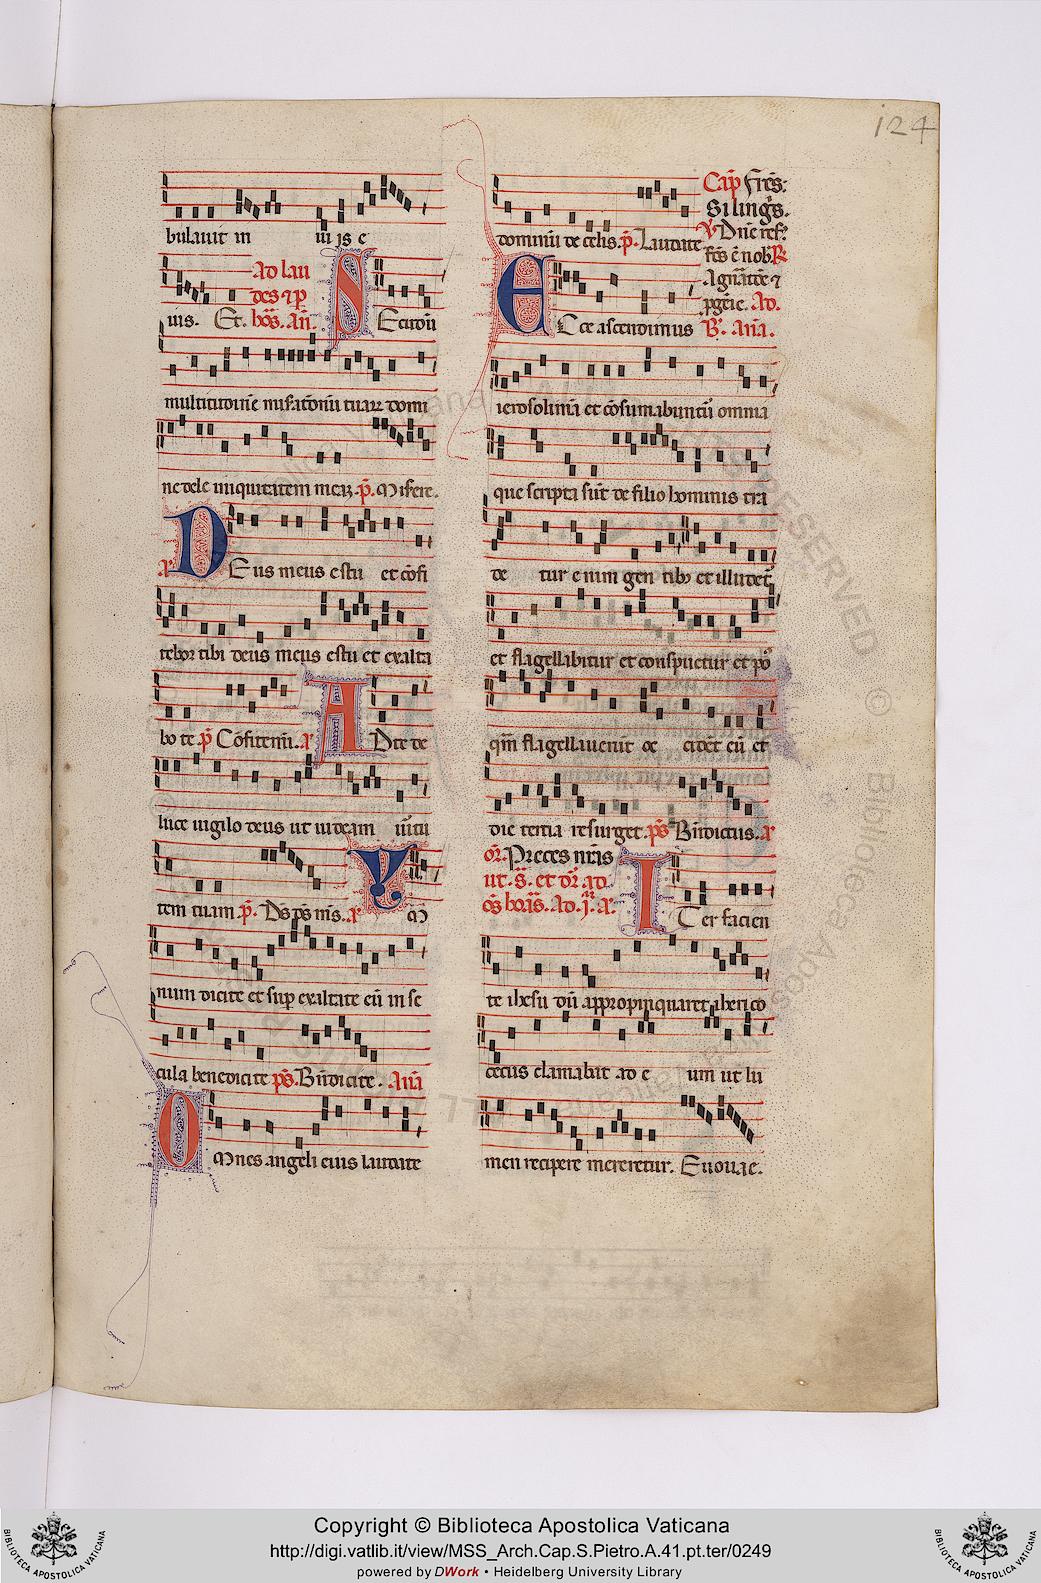 124
bulauit in uijs e
Ad lau
des 7 p
uis. Et. hoās. An̄. Secundū
multitudinē miseratōnū tuarꝝ domi
ne dele iniquitatem meā. p̄. Misere.
a᷑ Deus meus es tu et cōfi
tebor tibi deus meus es tu et exalta
bo te. p̄ Cōfitemī. a᷑ Ad te de
luce uigilo deus ut uideam uirtu
tem tuam. p̄. Ds ds m̄s. a᷑ Ym
num dicite et sup exaltate eū in se
cula benedicite p̄s. Bn̄dicite. Ana
Omnes angeli eius laudate
dominū de celis. p̄. Laudate
Cap̄ Frēs:
Si linḡs.
℣ Dn̄e ref.
fc̄s ē nob. ℟
Agnātē 7
pgēie. Ad.
B. Ana.
Ecce ascendimus
ierosolimā et cōsumabuntū omnia
que scripta sūt de filio hominis tra
de tur enim gen tibꝫ et illudet᷑
et flagellabitur et conspuetur et pꝰ
qm̄ flagellauerint oc cidēt eū et
die tertia resurget. p̄s Bn̄dictus. a᷑
or̄. Preces nr̄is
ut. s̄. et or̄. ad
oēs horās. Ad. j. a᷑. Iter facien
te ihesu dū appropinquaret iherico
cecus clamabat ad e um ut lu
men recipere mereretur. Euouae.
Copyright © Biblioteca Apostolica Vaticana
http://digi.vatlib.it/view/MSS_Arch.Cap.S.Pietro.A.41.pt.ter/0249
powered by DWork • Heidelberg University Library
BIBLIOTECA APOSTOLICA VATICANA
BIBLIOTECA APOSTOLICA VATICANA